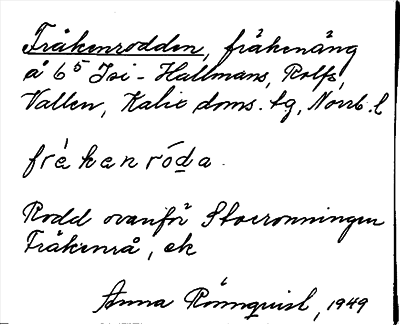 Fråkenrodden, fråkenäng
å 6⁵ Isi-Hallmans, Rolfs,
Vallen, Kalix doms. tg, Norrb. l
frèkenróda.
Rodd ovanför Storronningen
Fråkenrå, ek
Anna Rönnquist, 1949